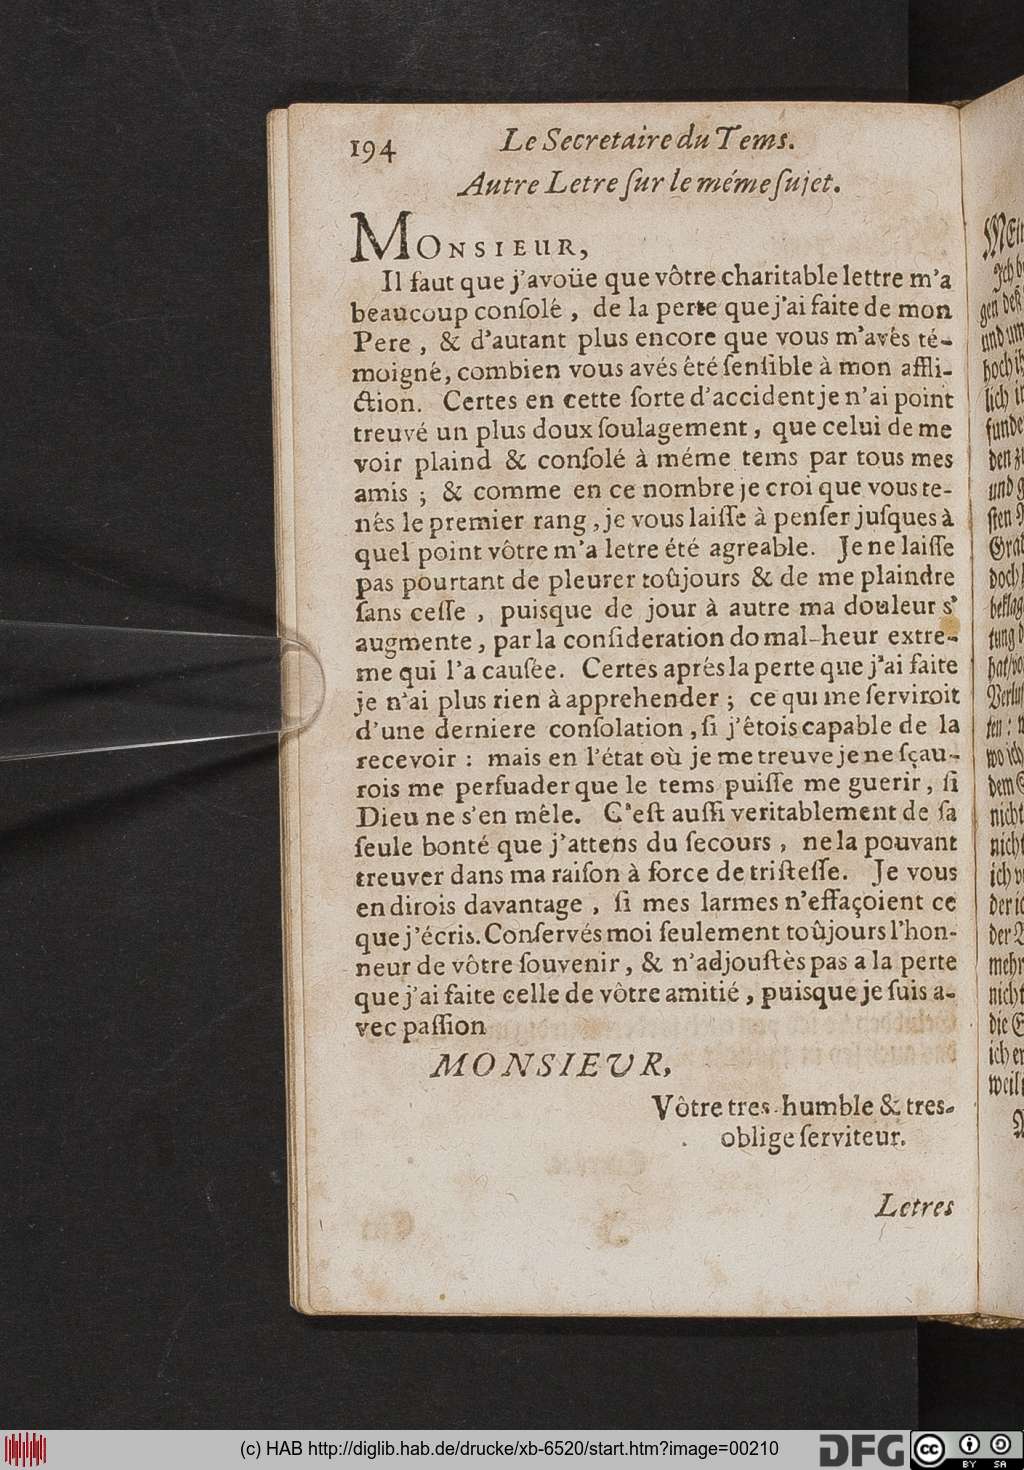 194 Le Secretaire du Tems.
Autre Letre ſur le méme ſujet.
MONSIEUR,
Il faut que j'avoüe que vôtre charitable lettre m'a
beaucoup conſolé , de la perte que j'ai faite de mon
Pere , & d'autant plus encore que vous m'avés té-
moigné, combien vous avés êté ſenſible à mon affli-
ction. Certes en cette ſorte d'accident je n'ai point
treuvé un plus doux ſoulagement , que celui de me
voir plaind & conſolé à méme tems par tous mes
amis ; & comme en ce nombre je croi que vous te-
nés le premier rang , je vous laiſſe à penſer juſques à
quel point vôtre m'a letre été agreable. Je ne laiſſe
pas pourtant de pleurer toûjours & de me plaindre
ſans ceſſe , puisque de jour à autre ma douleur s'
augmente , par la conſideration do mal-heur extre-
me qui l'a causée. Certes aprés la perte que j'ai faite
je n'ai plus rien à apprehender ; ce qui me ſerviroit
d'une derniere conſolation , ſi j'êtois capable de la
recevoir : mais en l'état où je me treuve je ne ſçau-
rois me perſuader que le tems puiſſe me guerir , ſi
Dieu ne s'en mêle. C'eſt auſſi veritablement de ſa
ſeule bonté que j'attens du ſecours , ne la pouvant
treuver dans ma raiſon à force de triſteſſe. Je vous
en dirois davantage , ſi mes larmes n'effaçoient ce
que j'écris. Conſervés moi ſeulement toûjours l'hon-
neur de vôtre ſouvenir , & n'adjouſtès pas a la perte
que j'ai faite celle de vôtre amitié , puisque je ſuis a-
vec paſſion
MONSIEUR,
Vôtre tres-humble & tres-
oblige ſerviteur.
Letres
(c) HAB http://diglib.hab.de/drucke/xb-6520/start.htm?image=00210
DFG
cc BY SA